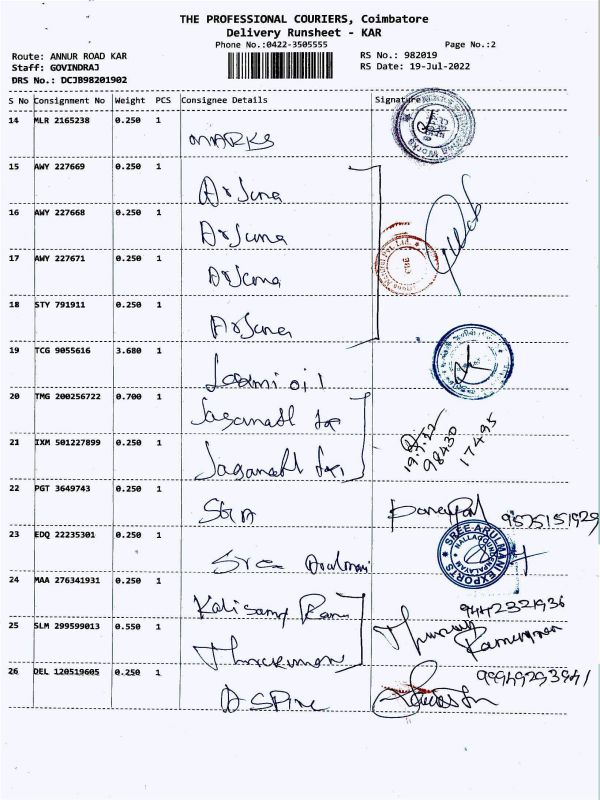 THE PROFESSIONAL COURIERS, Coimbatore
Delivery Runsheet - KAR
Phone No.:0422-3505555
Page No.:2
Route: ANNUR ROAD KAR
RS No.: 982019
Staff: GOVINDRAJ
RS Date: 19-Jul-2022
DRS No.: DCJB98201902
S No Consignment No Weight PCS Consignee Details Signature
14 MLR 2165238 0.250 1
MARKS
15 AWY 227669 0.250 1
Arjuna
16 AWY 227668 0.250 1
Arjuna
17 AWY 227671 0.250 1
Arjuna
18 STY 791911 0.250 1
Arjuna
19 TCG 9055616 3.680 1
Laxmi oil
20 TMG 200256722 0.700 1
Jaganath
19.7.22
98430
17495
21 IXM 501227899 0.250 1
Jaganath
22 PGT 3649743 0.250 1
9525151929
23 EDQ 22235301 0.250 1
Sree Arulmani
SREE ARULMANI EXPORTS
24 MAA 276341931 0.250 1
Kalisamy
9442321936
25 SLM 299599013 0.550 1
26 DEL 120519605 0.250 1